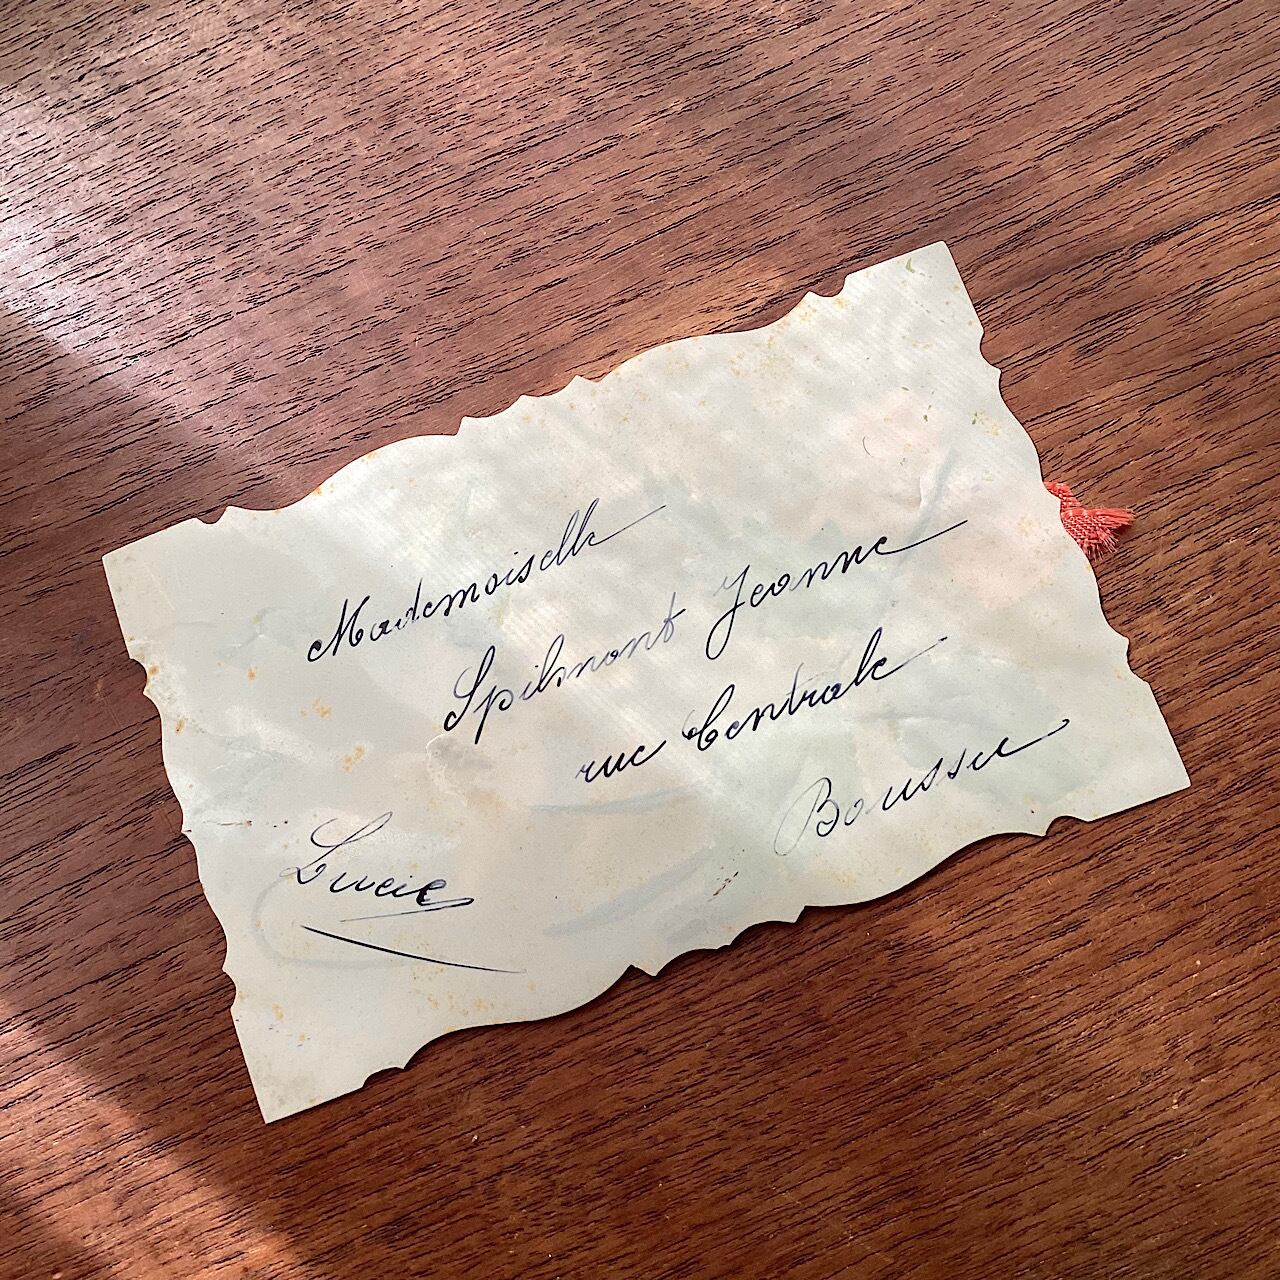 Mademoiselle
Spilmont Jeanne
rue Centrale
Boussu
Lucie